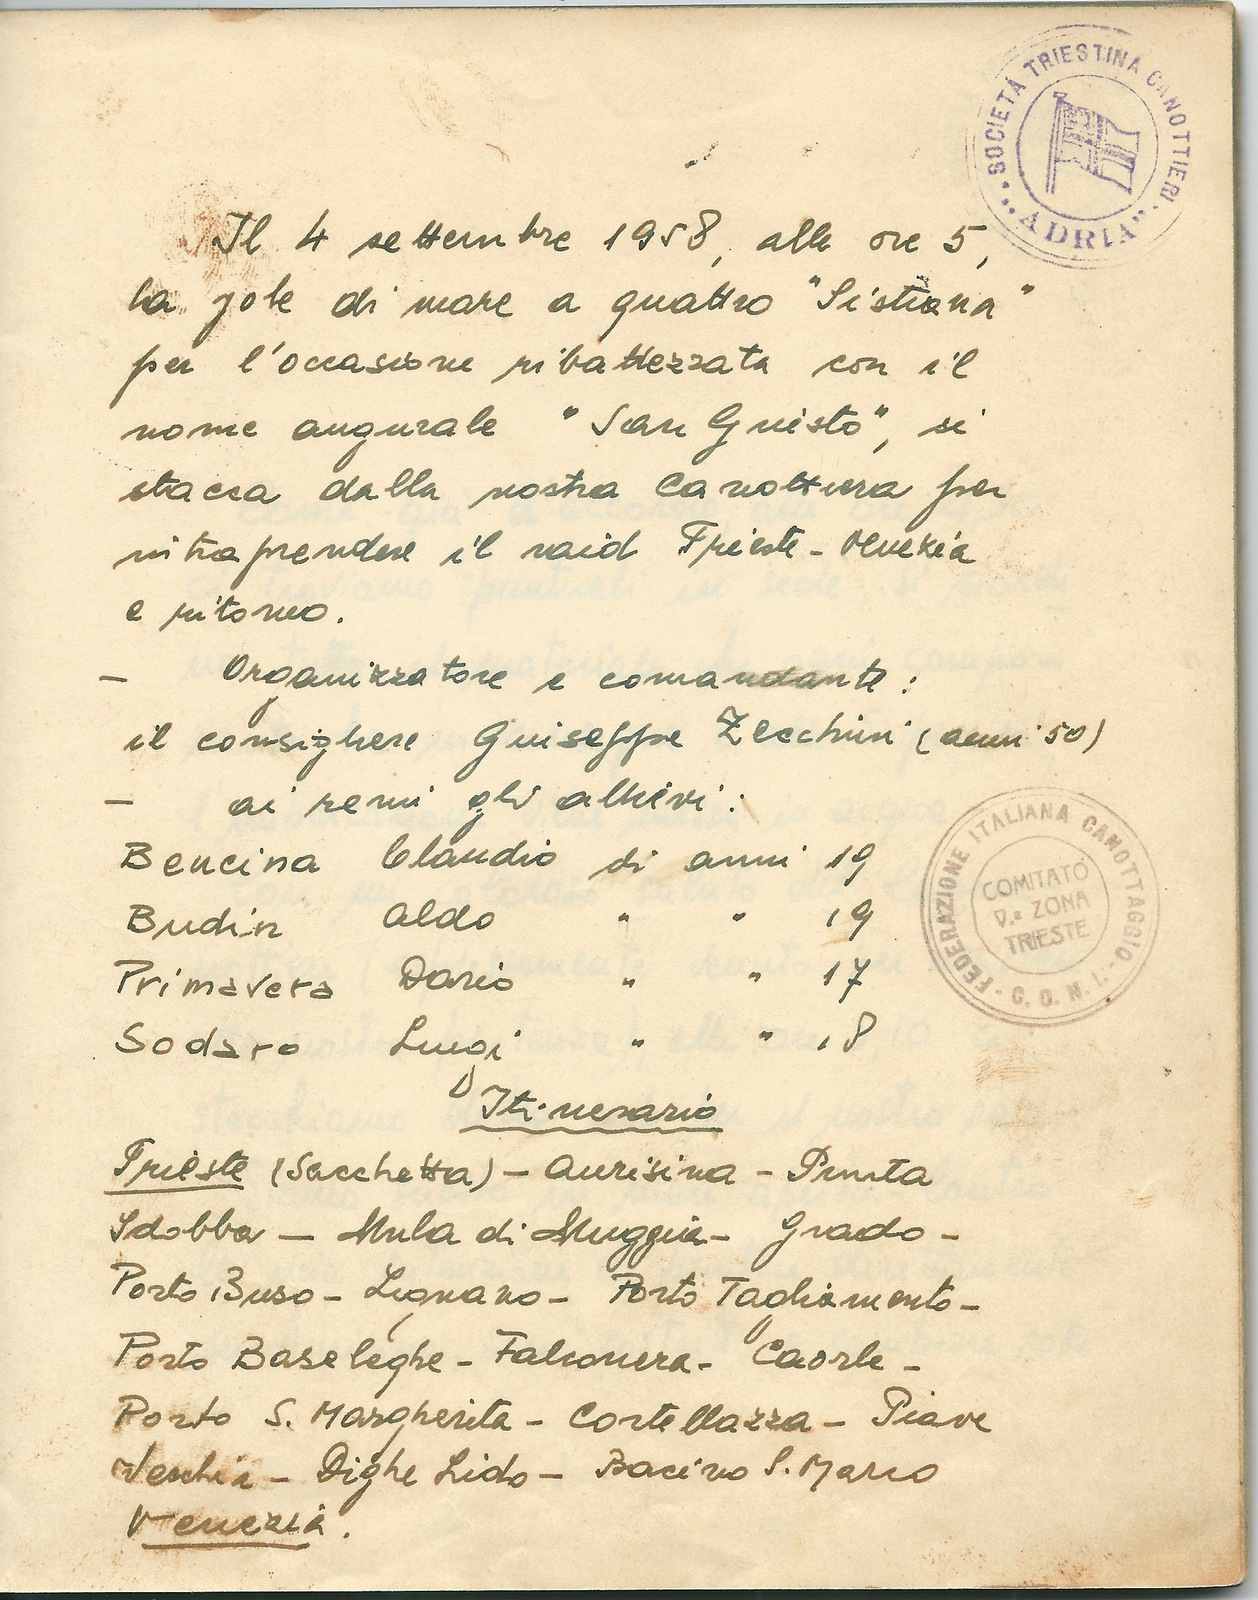 SOCIETÀ TRIESTINA CANOTTIERI
"ADRIA"
Il 4 settembre 1958, alle ore 5,
la jole di mare a quattro "Sistiana"
per l'occasione ribattezzata con il
nome augurale "San Giusto", si
stacca dalla nostra Canottiera per
intraprendere il raid Trieste - Venezia
e ritorno.
- Organizzatore e comandante :
il consigliere Guiseppe Zecchini (anni 50)
- ai remi gli allievi :
Bencina Claudio di anni 19
Budin Aldo " " 19
Primavera Dario " " 17
Sodaro Luigi " " 18
FEDERAZIONE ITALIANA CANOTTAGGIO - C.O.N.I. -
COMITATO
V.a ZONA
TRIESTE
Itinerario
Trieste (Sacchetta) - Aurisina - Punta
Sdobba - Mula di Muggia - Grado -
Porto Buso - Lignano - Porto Tagliamento -
Porto Baseleghe - Falconera - Caorle -
Porto S. Margherita - Cortellazza - Piave
Vecchia - Dighe Lido - Bacino S. Marco
Venezia.